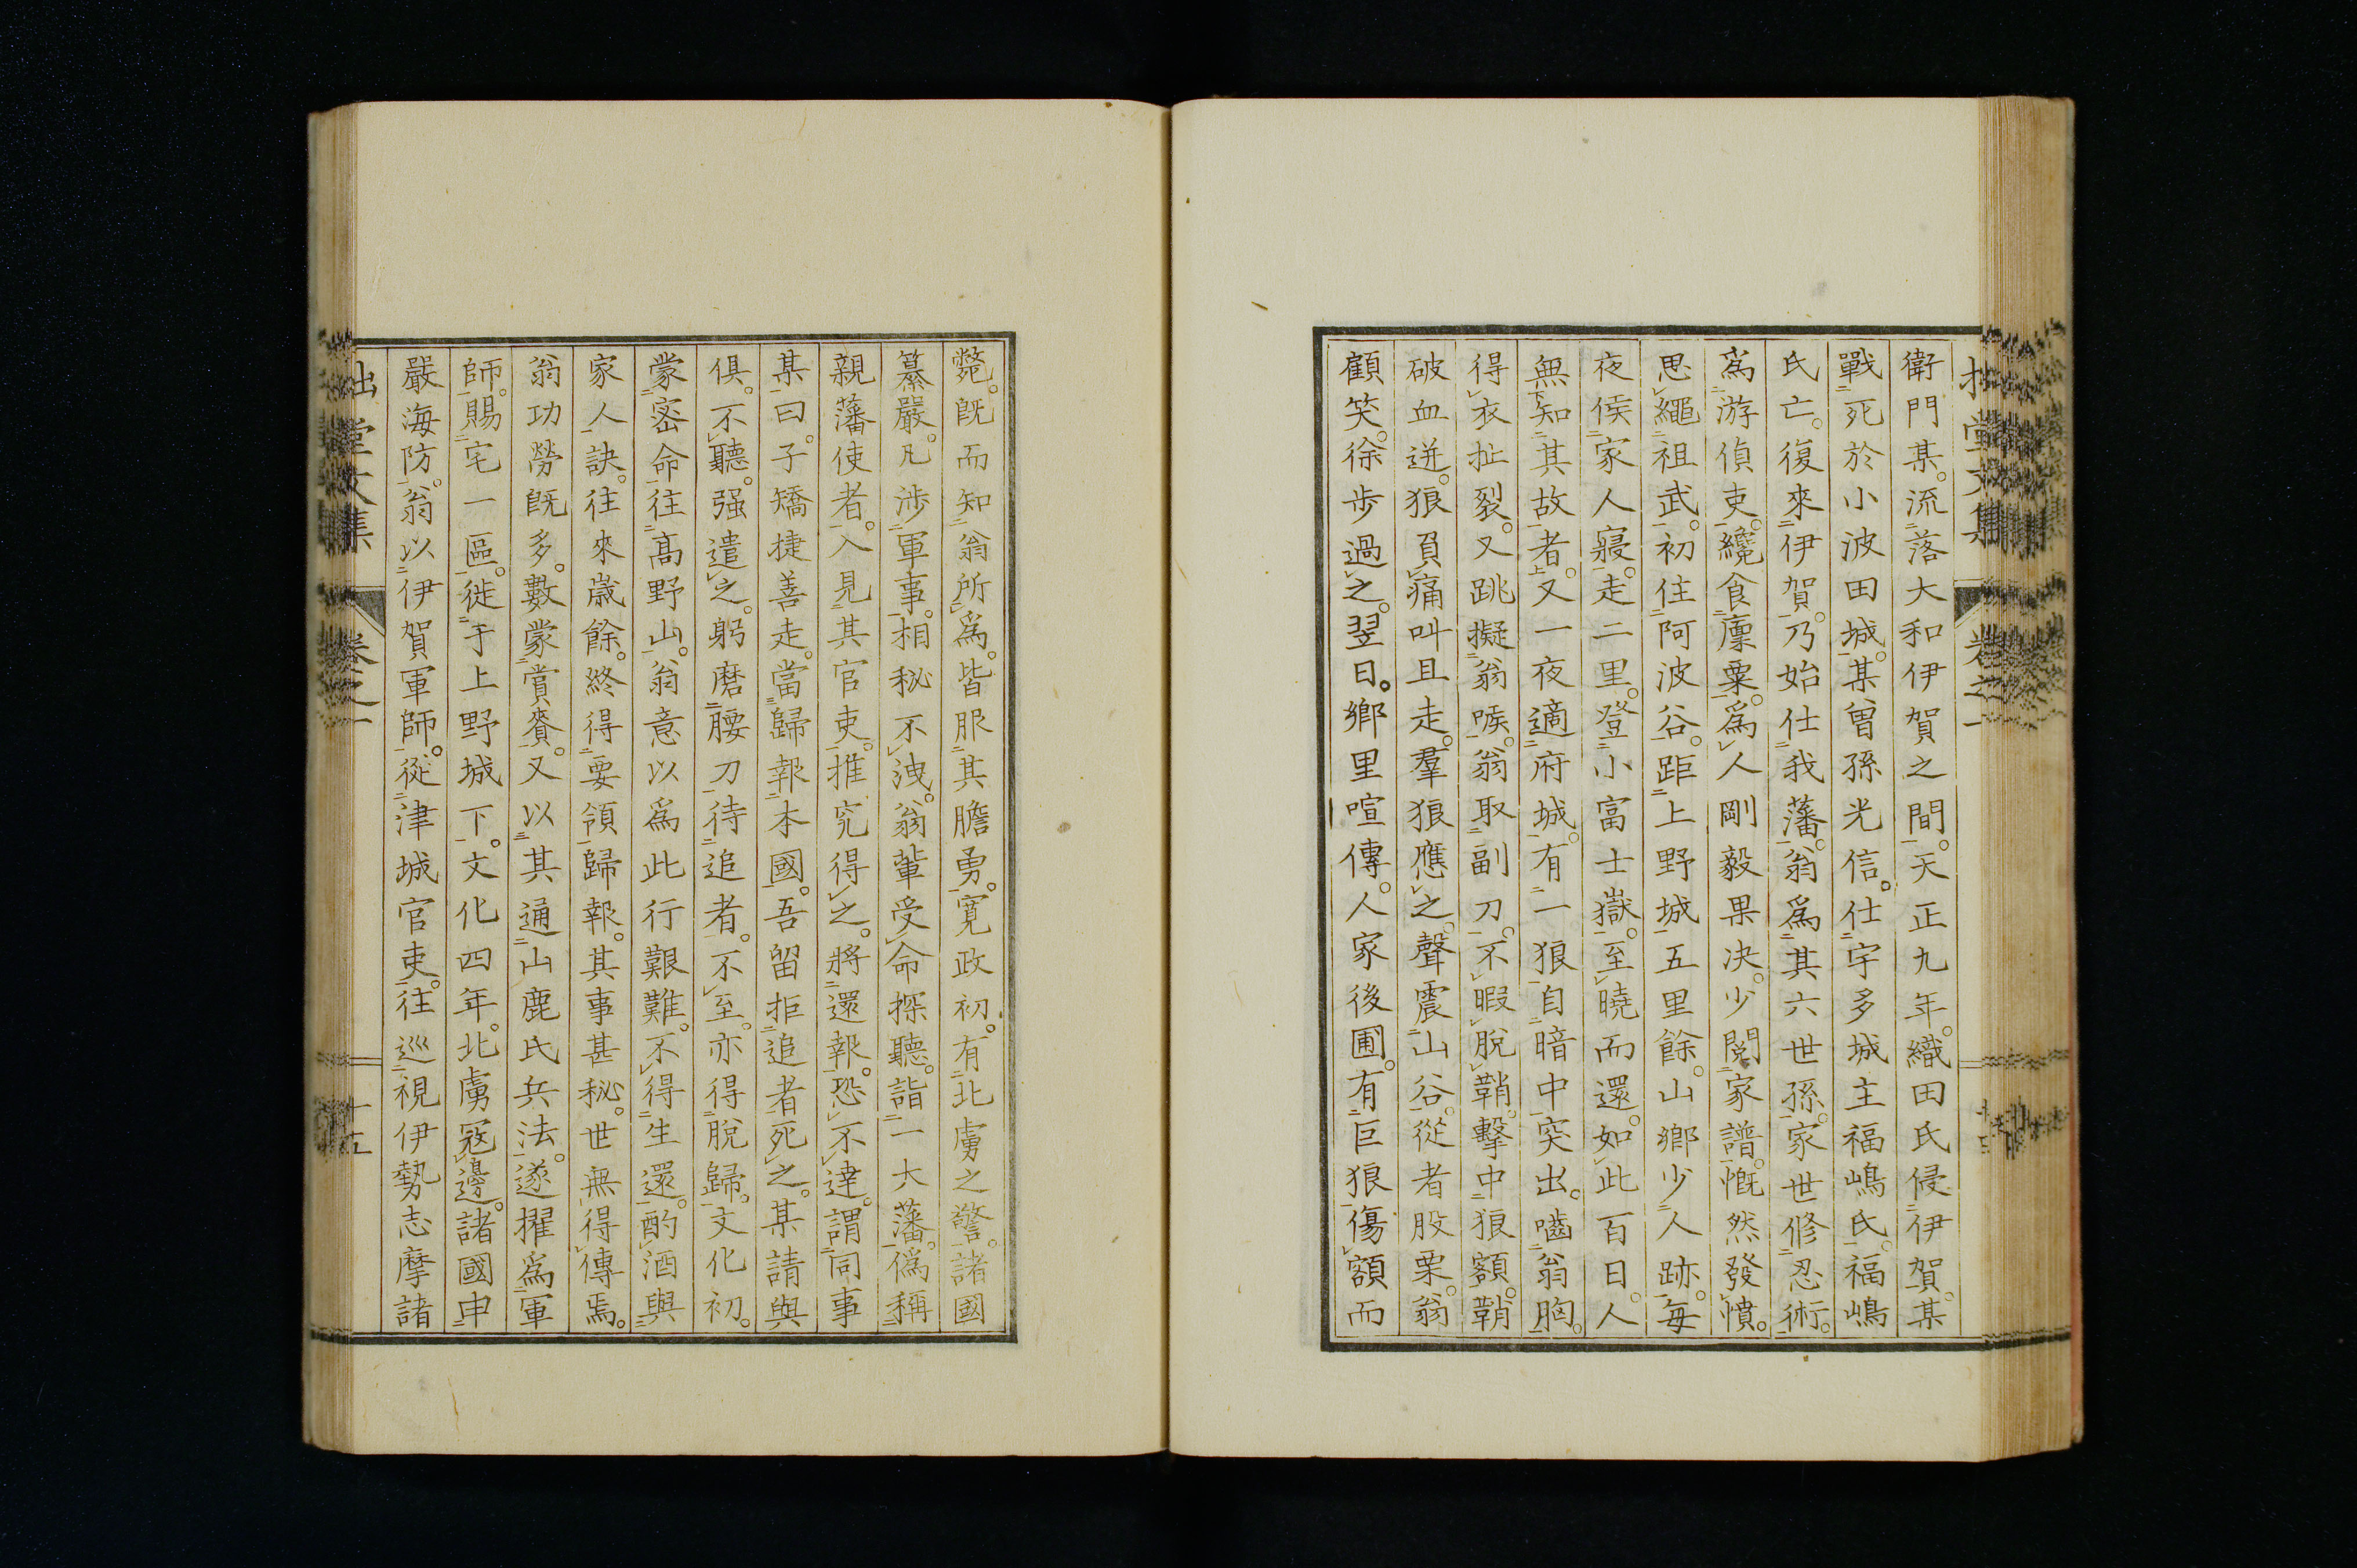 衞門某。流落大和伊賀之間。天正九年。織田氏侵伊賀。某
戰死於小波田城。某曾孫光信。仕宇多城主福嶋氏。福嶋
氏亡。復來伊賀。乃始仕我藩。翁爲其六世孫。家世修忍術。
爲游偵吏。纔食廩粟。爲人剛毅果决。少閱家譜。慨然發憤。
思繩祖武。初住阿波谷。距上野城五里餘。山鄉少人跡。每
夜候家人寢。走二里。登小富士嶽。至曉而還。如此百日。人
無知其故者。又一夜適府城。有一狼自暗中突出。嚙翁胸。
得衣扯裂。又跳擬翁喉。翁取副刀。不暇脫鞘。擊中狼額。鞘
破血迸。狼負痛叫且走。羣狼應之。聲震山谷。從者股栗。翁
顧笑。徐步過之。翌日。鄉里喧傳。人家後圃。有巨狼傷額而
斃。旣而知翁所爲。皆服其膽勇。寬政初。有北虜之警。諸國
纂嚴。凡涉軍事。相秘不洩。翁輩受命探聽。詣一大藩。僞稱
親藩使者。入見其官吏。推究得之。將還報。恐不達。謂同事
某曰。子矯捷善走。當歸報本國。吾留拒追者死之。某請與
俱。不聽。强遣之。躬磨腰刀待追者。不至。亦得脫歸。文化初。
蒙密命往高野山。翁意以爲此行艱難。不得生還。酌酒與
家人訣。往來歲餘。終得要領歸報。其事甚秘。世無得傳焉。
翁功勞旣多。數蒙賞賚。又以其通山鹿氏兵法。遂擢爲軍
師。賜宅一區。徙于上野城下。文化四年。北虜寇邊。諸國申
嚴海防。翁以伊賀軍師。從津城官吏。往巡視伊勢志摩諸
拙堂文集 卷之一